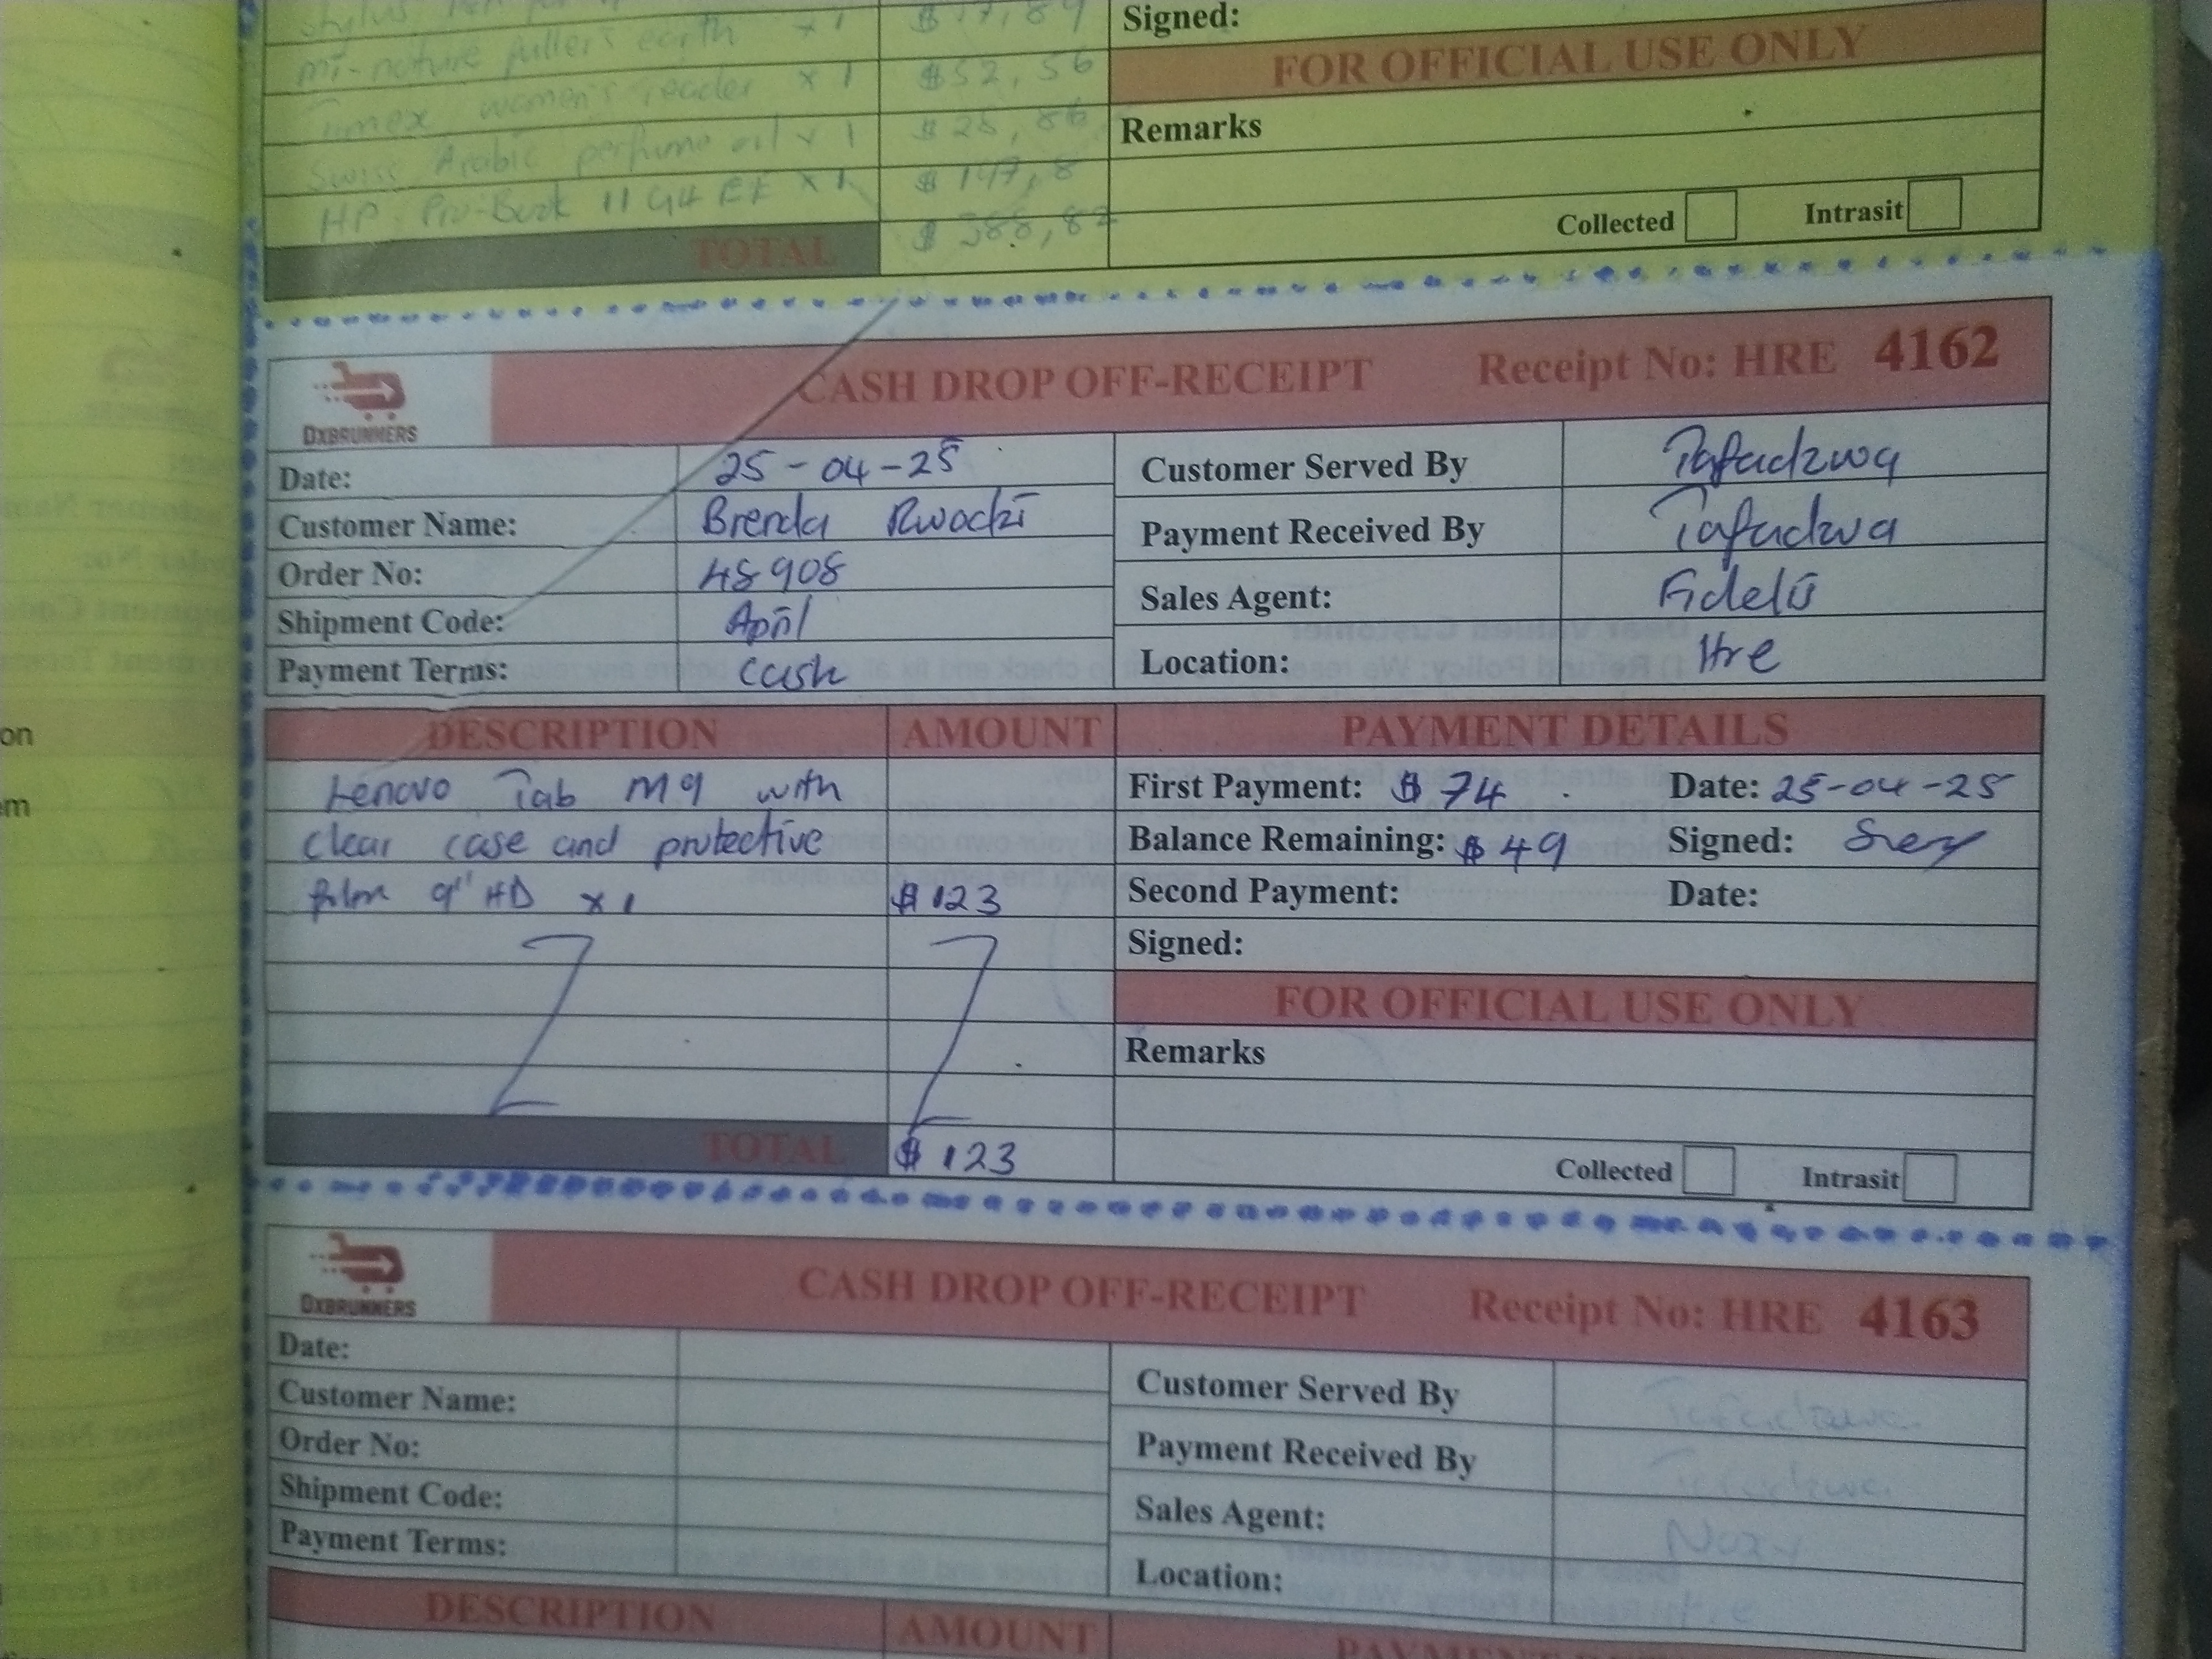 Signed:
mi-nature fuller's earth x 1 $17,89
FOR OFFICIAL USE ONLY
Timex women's reader x 1 $52,56
Remarks
Swiss Arabic perfume oil x 1 $25,86
HP Pro-Book 11 G4 EE x 1 $147,8
Collected Intrasit
TOTAL $388,82
DXBRUNNERS
CASH DROP OFF-RECEIPT Receipt No: HRE 4162
Date: 25-04-25 Customer Served By Tafadzwa
Customer Name: Brenda Payment Received By Tafadzwa
Order No: 48908
Sales Agent: Fidelis
Shipment Code: April
Location: Hre
Payment Terms: cash
DESCRIPTION AMOUNT PAYMENT DETAILS
Lenovo Tab M9 with First Payment: $74 Date: 25-04-25
clear case and protective Balance Remaining: $49 Signed:
film 9" HD x 1 $123 Second Payment: Date:
Signed:
FOR OFFICIAL USE ONLY
Remarks
TOTAL $123
Collected Intrasit
DXBRUNNERS
CASH DROP OFF-RECEIPT Receipt No: HRE 4163
Date:
Customer Served By Tafadzwa
Customer Name:
Order No:
Payment Received By Tafadzwa
Shipment Code:
Sales Agent: Noxy
Payment Terms:
Location: Hre
DESCRIPTION AMOUNT